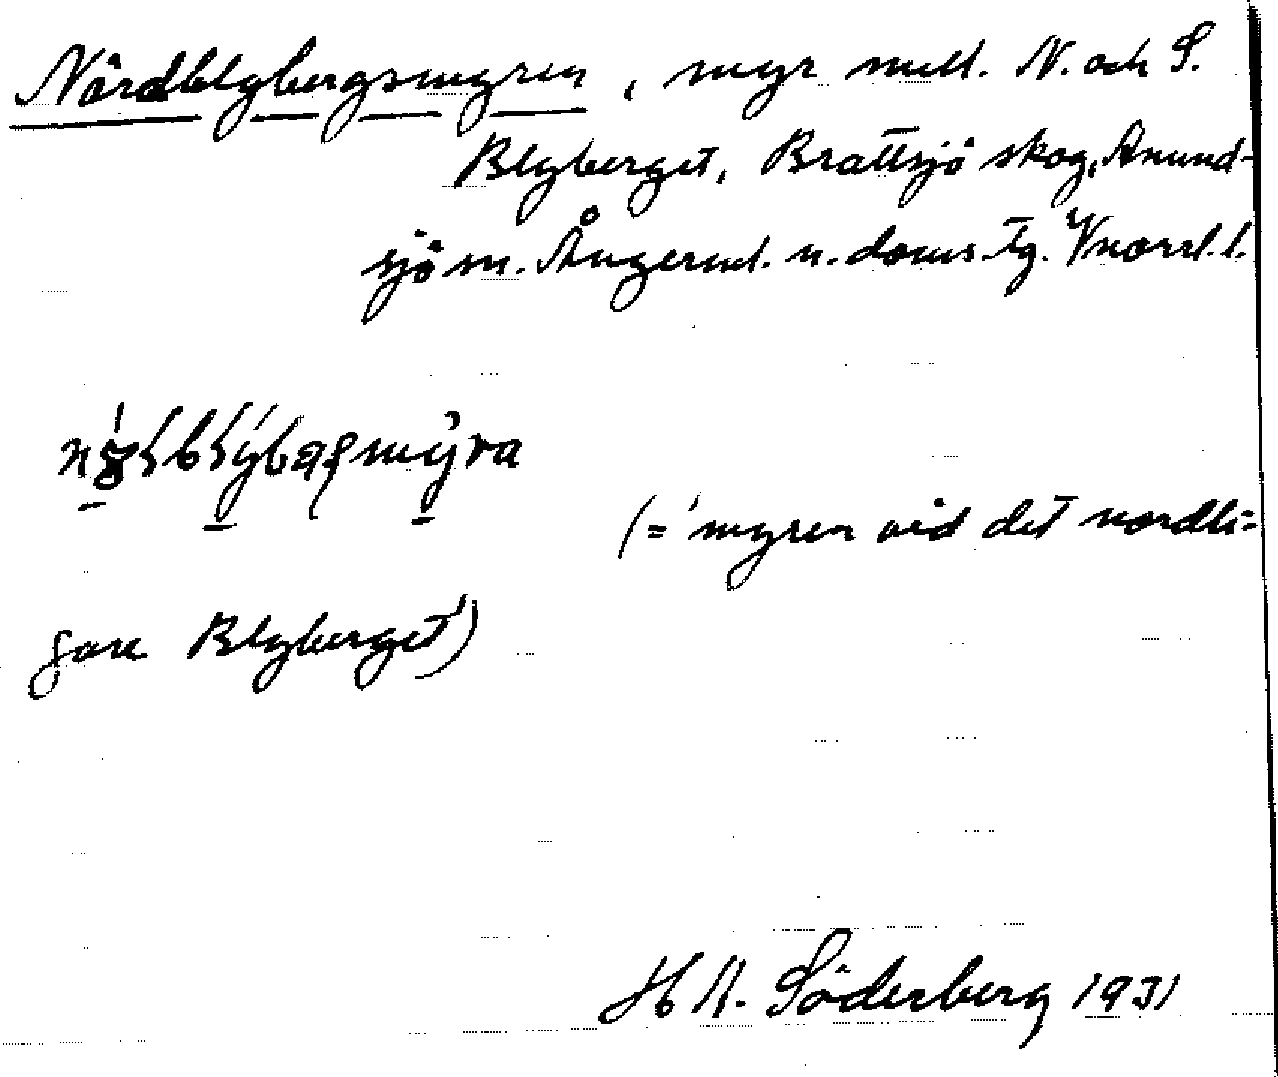 Nordblybergsmyren, myr mell. N. och S.
Blyberget, Brattsjö skog, Anund-
sjö sn. Ångerml. n. doms. tg. Vnorrl. l.
(= 'myren vid det nordli-
gare Blyberget')
H A. Söderberg 1931